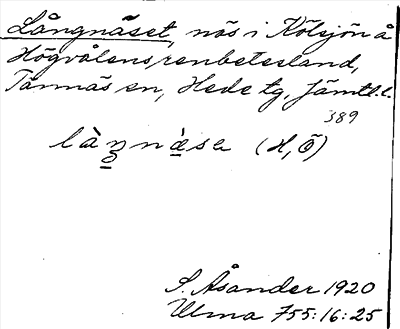 Långnäset, näs i Kölsjön å
Högvålens renbetesland,
Tännäs sn, Hede tg, Jämtl. l.
389
làŋnä̀sa (H, Ö)
S. Åsander 1920
Ulma 755:16:25